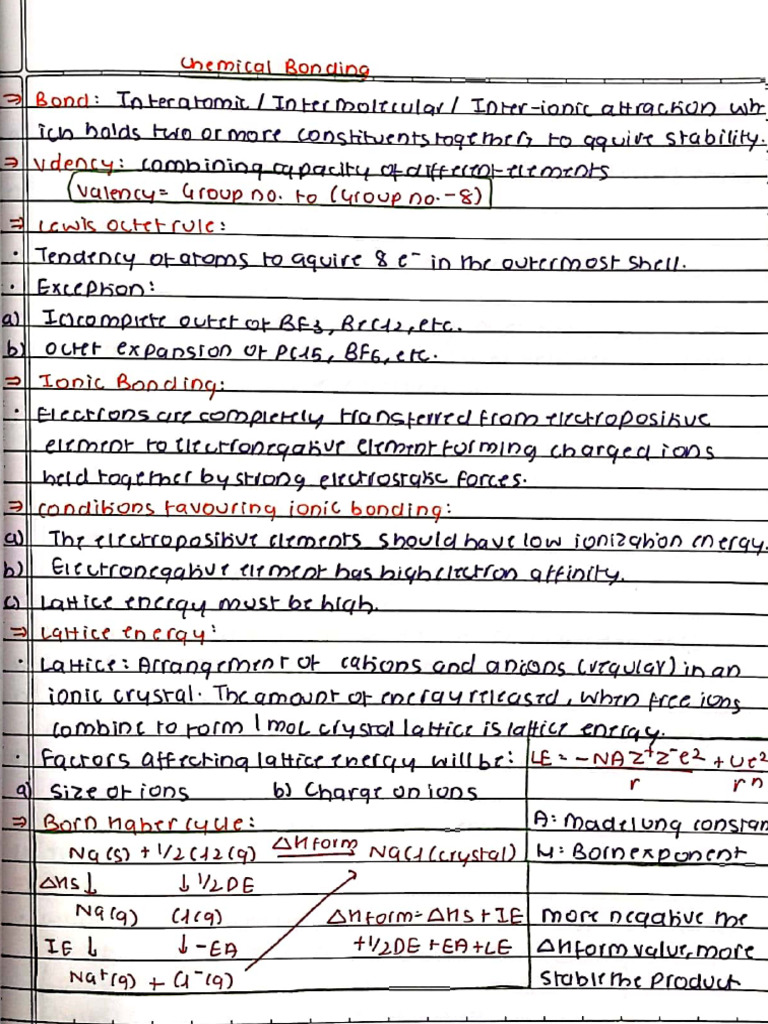 Chemical Bonding
⇒ Bond: Interatomic / Intermolecular / Inter-ionic attraction wh
ich holds two or more constituents together, to aquire stability.
⇒ Valency: combining capacity of different elements
Valency = Group no. to (Group no. - 8)
⇒ Lewis octet rule:
· Tendency of atoms to aquire 8 e⁻ in the outermost shell.
· Exception:
a) Incomplete outet of BF3, BeCl2, etc.
b) octet expansion of PCl5, BF6, etc.
⇒ Ionic Bonding:
· Electrons are completely transferred from electropositive
element to electronegative element forming charged ions
held together by strong electrostatic forces.
⇒ conditions favouring ionic bonding:
a) The electropositive elements should have low ionization energy.
b) Electronegative element has high electron affinity.
c) Lattice energy must be high.
⇒ Lattice energy:
· Lattice: Arrangement of cations and anions (regular) in an
ionic crystal. The amount of energy released, when free ions
combine to form 1 mol crystal lattice is lattice energy.
· Factors affecting lattice energy will be:
a) size of ions b) Charge on ions
LE = -NAZ⁺Z⁻e² + Ue²
r rn
A: madelung constan
M: Born exponent
⇒ Born haber cycle:
Na(s) + 1/2 Cl2(g) ΔHform → NaCl (crystal)
ΔHs ↓ ↓ 1/2 DE
Na(g) Cl(g)
IE ↓ ↓ -EA
Na⁺(g) + Cl⁻(g)
ΔHform = ΔHs + IE
+ 1/2 DE + EA + LE
more negative the
ΔHform value, more
stable the product